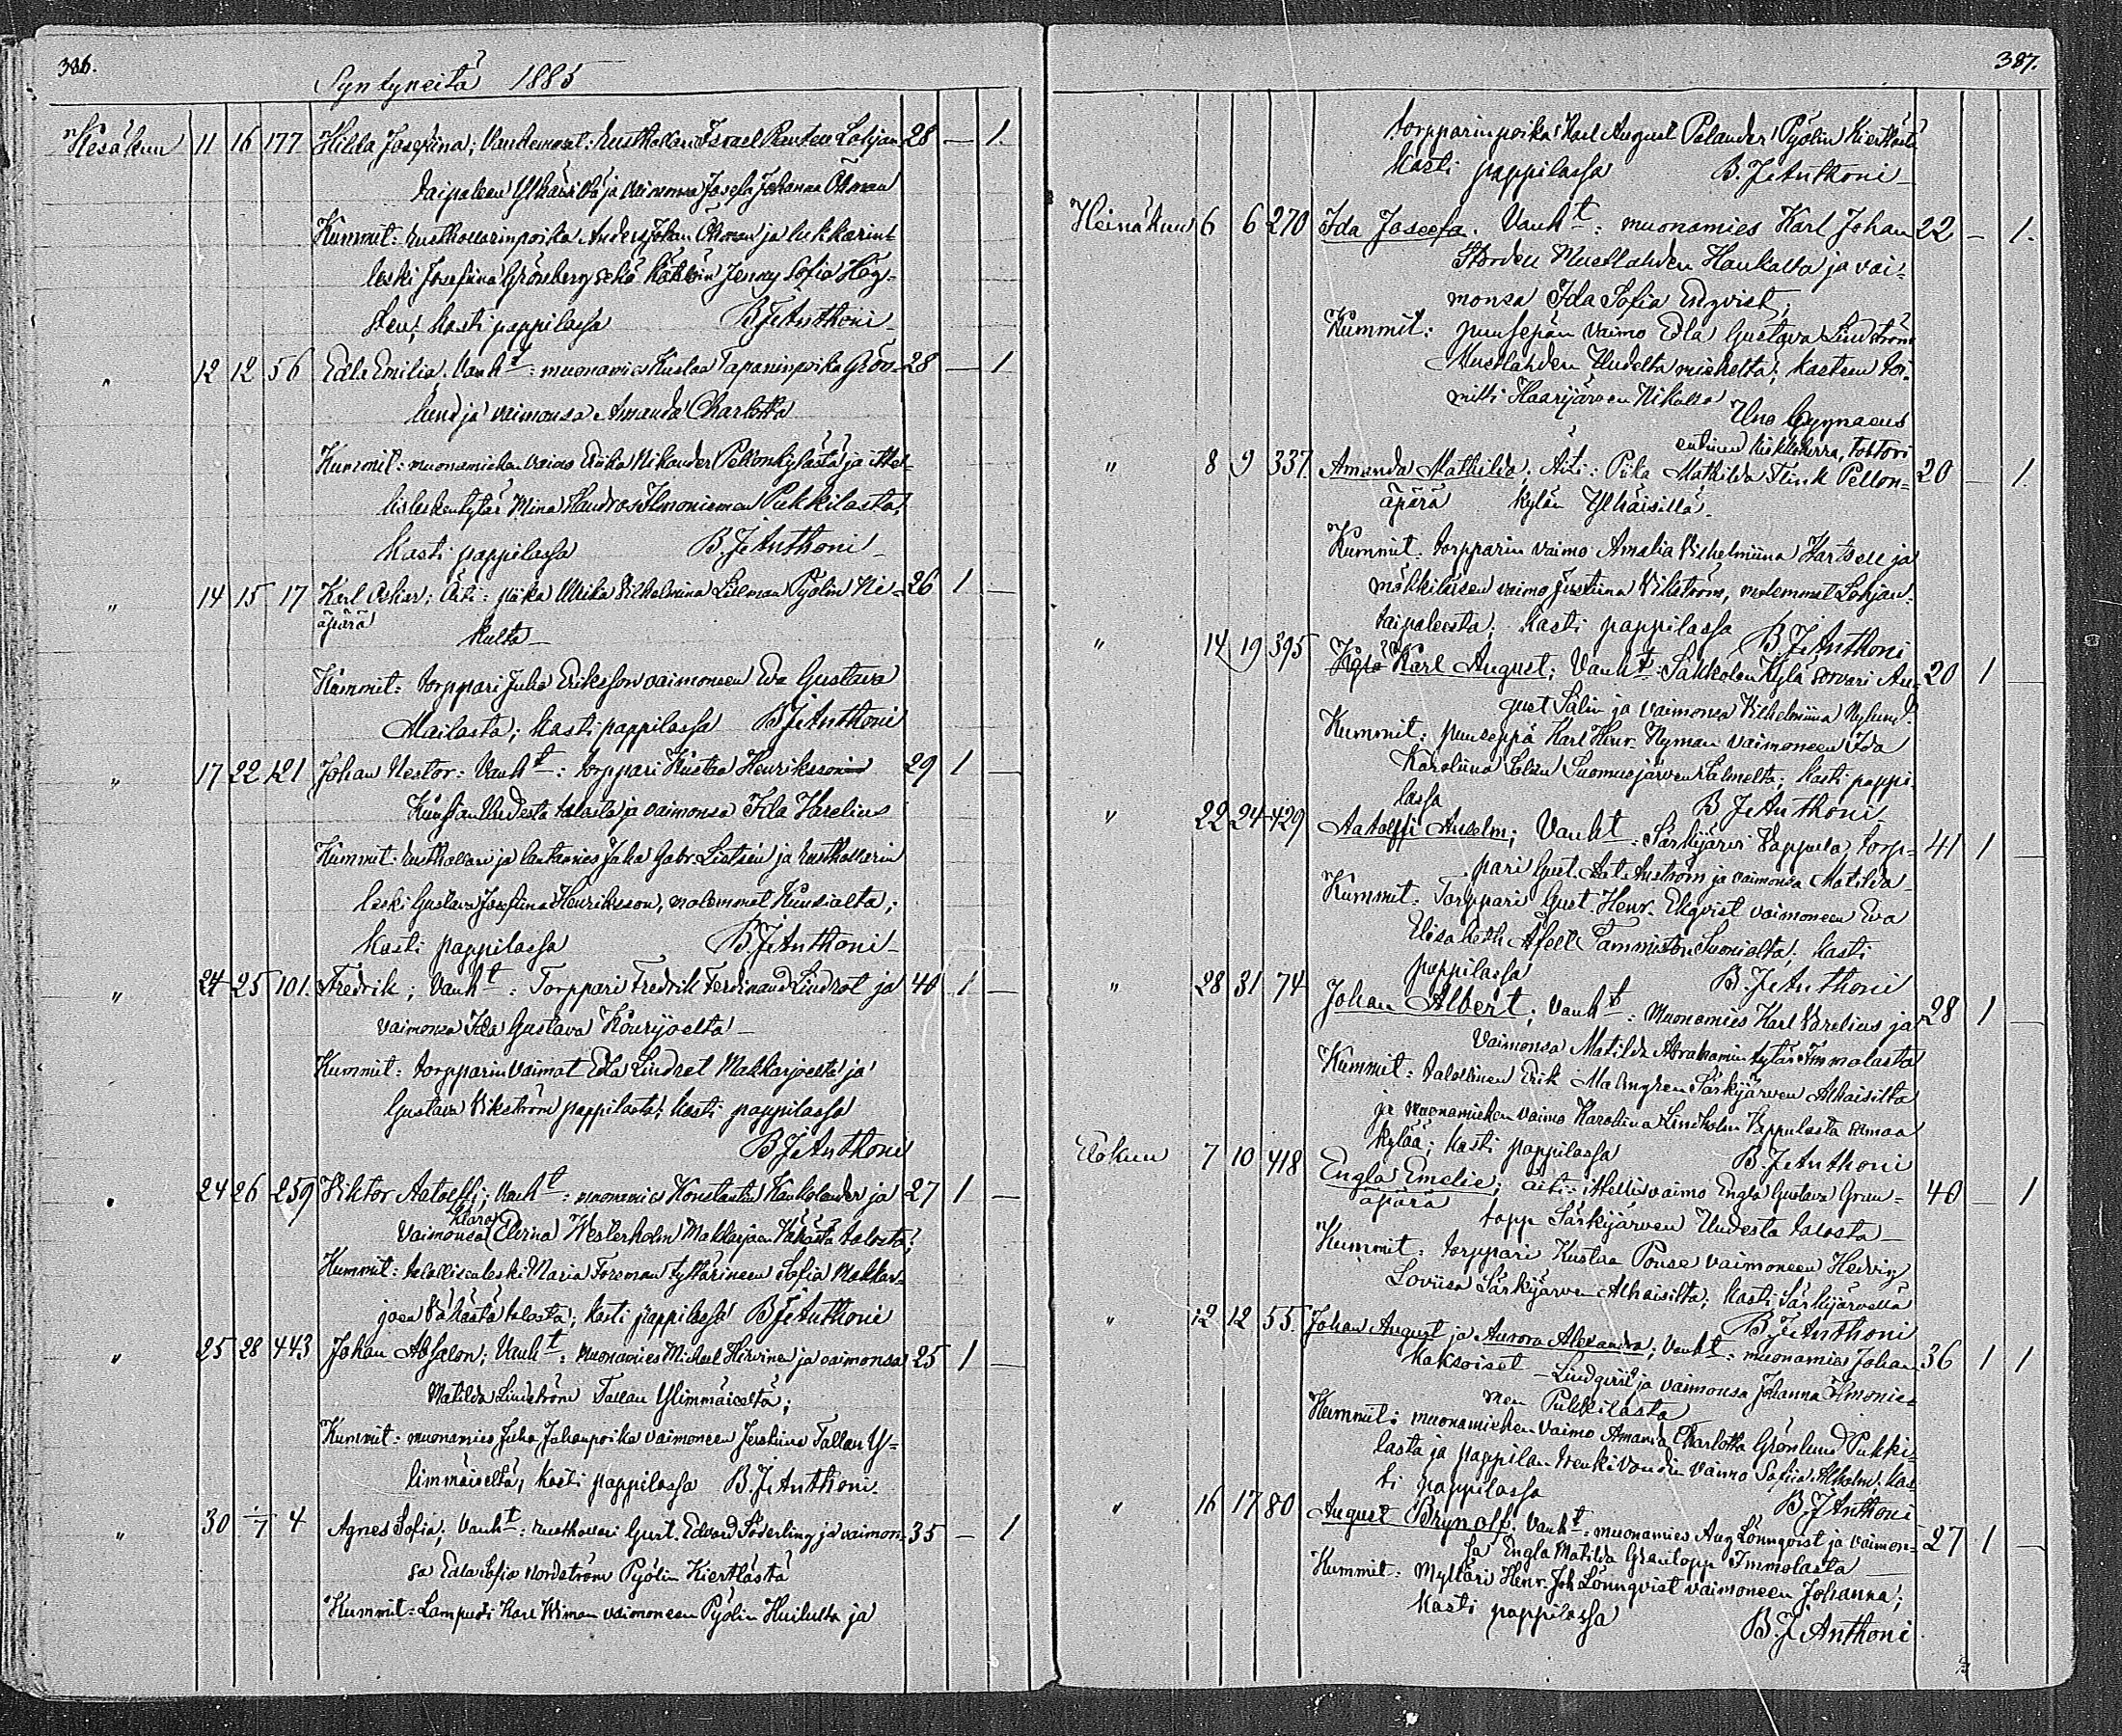 386.
Syntyneitä 1885
Kesäkuu 11 16 177 Hilda Josefiina; Vanhemmat: Rusthollari Israel Lohjan 28 — 1.
taipaleen Ylhäisiltä ja vaimonsa Josefa Johanna Öhman
Kummit: rusthollarinpoika Anders Johan Öhman ja lukkarin
leski Josefiina Grönberg sekä Jenny Sofia Hög-
sten; kasti pappilassa B. J. Anthoni
" 12 12 56 Edla Emilia. Vanht: muonamies Kustaa Tapaninpoika Grön- 28 — 1
lund ja vaimonsa Amanda Charlotta
Kummit: muonamiehen vaimo Nikander Pellonkylästä ja itsel-
lisleskentytär Mina Ilmoniemen Pukkilasta;
kasti pappilassa B. J. Anthoni
" 14 15 17 Karl Oskar; Äiti: piika Ulrika Vilhelmina Lillman Pyölin Ni- 26 1 —
äpärä
kulta
Kummit: torppari Juho Eriksson vaimoneen Eva Gustava
Mailasta; kasti pappilassa B. J. Anthoni
" 17 22 121 Johan Nestor: Vanht: torppari Kustaa Henriksson 29 1 —
Uudesta talosta ja vaimonsa Ida Varelius
Kummit: rusthollari ja lautamies Juha Gabr. Lietsén ja rusthollarin
leski Gustava Josefiina Henriksson, molemmat Kuusialta;
kasti pappilassa B. J. Anthoni
" 24 25 101. Fredrik; Vanht: Torppari Fredrik Ferdinand Lindrot ja 40 1 —
vaimonsa Ida Gustava Kourjoelta
Kummit: torpparin vaimot Edla Lindret Makkarjoelta ja
Gustava Vikström pappilasta; kasti pappilassa
B. J. Anthoni
" 24 26 259 Viktor Aatolffi; Vanht: muonamies Konstantin Kaukolander ja 27 1 —
Klara
vaimonsa Elvina Westerholm Makkarjoen Vähästä talosta;
Kummit: talollisenleski Maria Foreman tyttärineen Sofia Makkar-
joen Vähästä talosta; kasti pappilassa B. J. Anthoni
" 25 28 443 Johan Absalon; Vanht: Muonamies Mickael Hirvinen ja vaimonsa 25 1 —
Matilda Lindström Tallan Ylimmäiseltä;
Kummit: muonamies Juho Juhanpoika vaimoneen Justiina Tallan Y-
limmäiseltä; kasti pappilassa B. J. Anthoni.
" 30 1/7 4 Agnes Sofia; Vanht: rusthollari Gust. Edvard Söderling ja vaimon- 35 — 1
sa Edla Sofia Nordström Pyölin Kiertlästä
Kummit: Lampuoti Karl Wiman vaimoneen Pyölin Huilulta ja
387.
torpparinpoika Karl August Palander Pyölin Kiertlästä
kasti pappilassa B. J. Anthoni
Heinäkuu 6 6 270 Ida Joseefa. Vanht: muonamies Karl Johan 22 — 1.
Mustlahden Haukalta ja vai-
monsa Ida Sofia Enqvist;
Kummit: puusepän vaimo Edla Gustava Lindström
Mustlahden Uudelta; kasteen toi-
mitti Haarijärven Nikulla
Uno Cygnaeus
entinen tohtori
" 8 9 337. Amanda Mathilda; Äiti: Piika Mathilda Flink Pellon- 20 — 1.
äpärä kylän Ylhäisiltä
Kummit: torpparin vaimo Amalia Vilhelmiina Hartsell ja
mökkiläisen vaimo Justiina Vikström, molemmat Lohjan-
taipaleesta; kasti pappilassa B. J. Anthoni
" 14 19 395 Karl August; Vanht: Sakkolan Kylä sorvari Au- 20 1 —
gust Salin ja vaimonsa Vilhelmiina Nylund.
Kummit: puuseppä Karl Henr. Nyman vaimoneen Ida
Karoliina Suomusjärven Salmelta; kasti pappi-
lassa B. J. Anthoni
" 22 24 429 Aatolffi Anselm; Vanht: Särkijärvi Vappula torp- 41 1 —
pari Gust. Aat. Anström ja vaimonsa Matilda
Kummit: Torppari Gust. Henr. Ekqvist vaimoneen Eva
Elisabeth Tammiston Suonialta; kasti
pappilassa B. J. Anthoni
" 28 31 74 Johan Albert; Vanht: Muonamies Karl Varelius ja 28 1 —
vaimonsa Matilda Abrahamintytär Immolasta
Kummit: talollinen Erik Malmgren Särkijärven Alhaisilta
ja muonamiehen vaimo Karoliina Lindholm Vappulasta samaa
kylää; kasti pappilassa B. J. Anthoni
Elokuu 7 10 418 Engla Emelie; äiti: itsellisvaimo Engla Gustava Gran- 40 — 1
äpärä topp Särkijärven Uudesta talosta
Kummit: torppari Kustaa Pouse vaimoneen Hedvig
Loviisa Särkijärven Alhaisilta; kasti Särkijärvellä
B. J. Anthoni
" 12 12 55. Johan August ja Aurora Alexandra; Vanht: muonamies Johan 36 1 1
kaksoiset Lindqvist ja vaimonsa Johanna Ilmonie-
men Pukkilasta
Kummit: muonamiehen vaimo Amanda Charlotta Grönlund Pukki-
lasta ja pappilan renkivoudin vaimo Sofia Alholm; kas-
ti pappilassa B. J. Anthoni
" 16 17 80 August Brynolf. Vanht: muonamies Aug. Lönnqvist ja vaimon- 27 1 —
sa Engla Matilda Grantopp Immolasta
Kummit: Mylläri Henr. Joh. Lönnqvist vaimoneen Johanna;
kasti pappilassa B. J. Anthoni